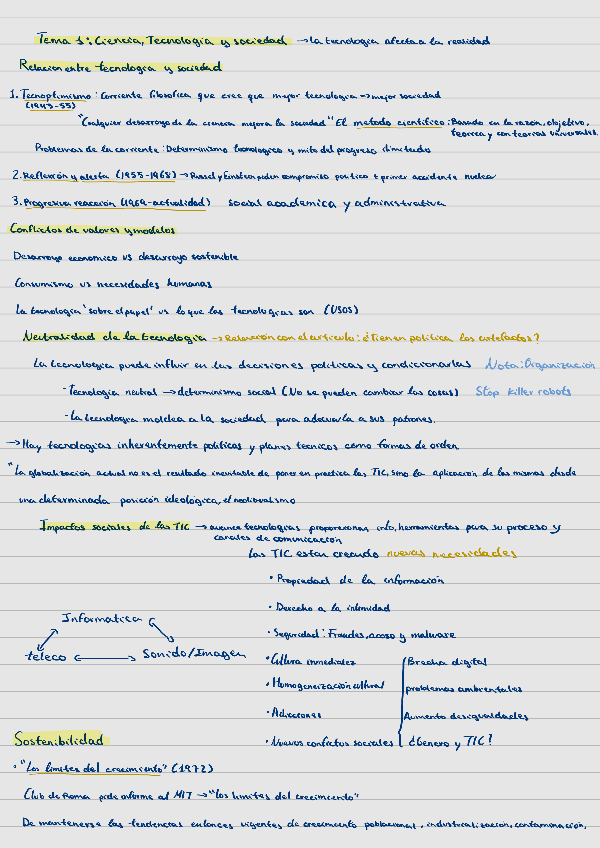 Tema 1: Ciencia, Tecnologia y sociedad → La tecnologia afecta a la realidad
Relacion entre tecnologia y sociedad
1. Tecnoptimismo: Corriente filosofica que cree que mejor tecnologia → mejor sociedad
(1945-55)
"Cualquier desarroyo de la ciencia mejora la sociedad" El metodo cientifico: Basado en la razón, objetivo,
teorica y con teorias universales.
Problemas de la corriente: Determinismo tecnologico y mito del progreso ilimitado
2. Reflexión y alerta (1955-1968) → Russel y Einstein piden compromiso politico + primer accidente nuclear
3. Progresiva reacción (1969-actualidad) social academica y administrativa
Conflictos de valores y modelos
Desarroyo economico vs desarroyo sostenible
Consumismo vs necesidades humanas
La tecnologia "sobre el papel" vs lo que las tecnologias son (USOS)
Neutralidad de la tecnologia → Relación con el articulo: ¿Tienen politica los artefactos?
La tecnologia puede influir en las decisiones politicas y condicionarlas Nota: Organización
- Tecnologia neutral → determinismo social (No se pueden cambiar las cosas) Stop killer robots
- La tecnologia moldea a la sociedad para adecuarla a sus patrones.
→ Hay tecnologias inherentemente politicas y planes tecnicos como formas de orden
"La globalización actual no es el resultado inevitable de poner en practica las TIC, sino la aplicación de las mismas desde
una determinada posición ideologica, el neoliberalismo
Impactos sociales de las TIC → avance tecnologias proporcionan info, herramientas para su proceso y
canales de comunicación
Las TIC estan creando nuevas necesidades
• Propiedad de la información
• Derecho a la intimidad
Informatica
• Seguridad: Fraudes, acoso y malware
teleco Sonido/Imagen
• Cultura inmediatez Brecha digital
• Homogeneización cultural problemas ambientales
• Adicciones Aumento desigualdades
• Nuevos conflictos sociales ¿Genero y TIC?
Sostenibilidad
• "Los limites del crecimiento" (1972)
Club de Roma pide informe al MIT → "los limites del crecimiento"
De mantenerse las tendencias entonces vigentes de crecimiento poblacional, industrialización, contaminación,